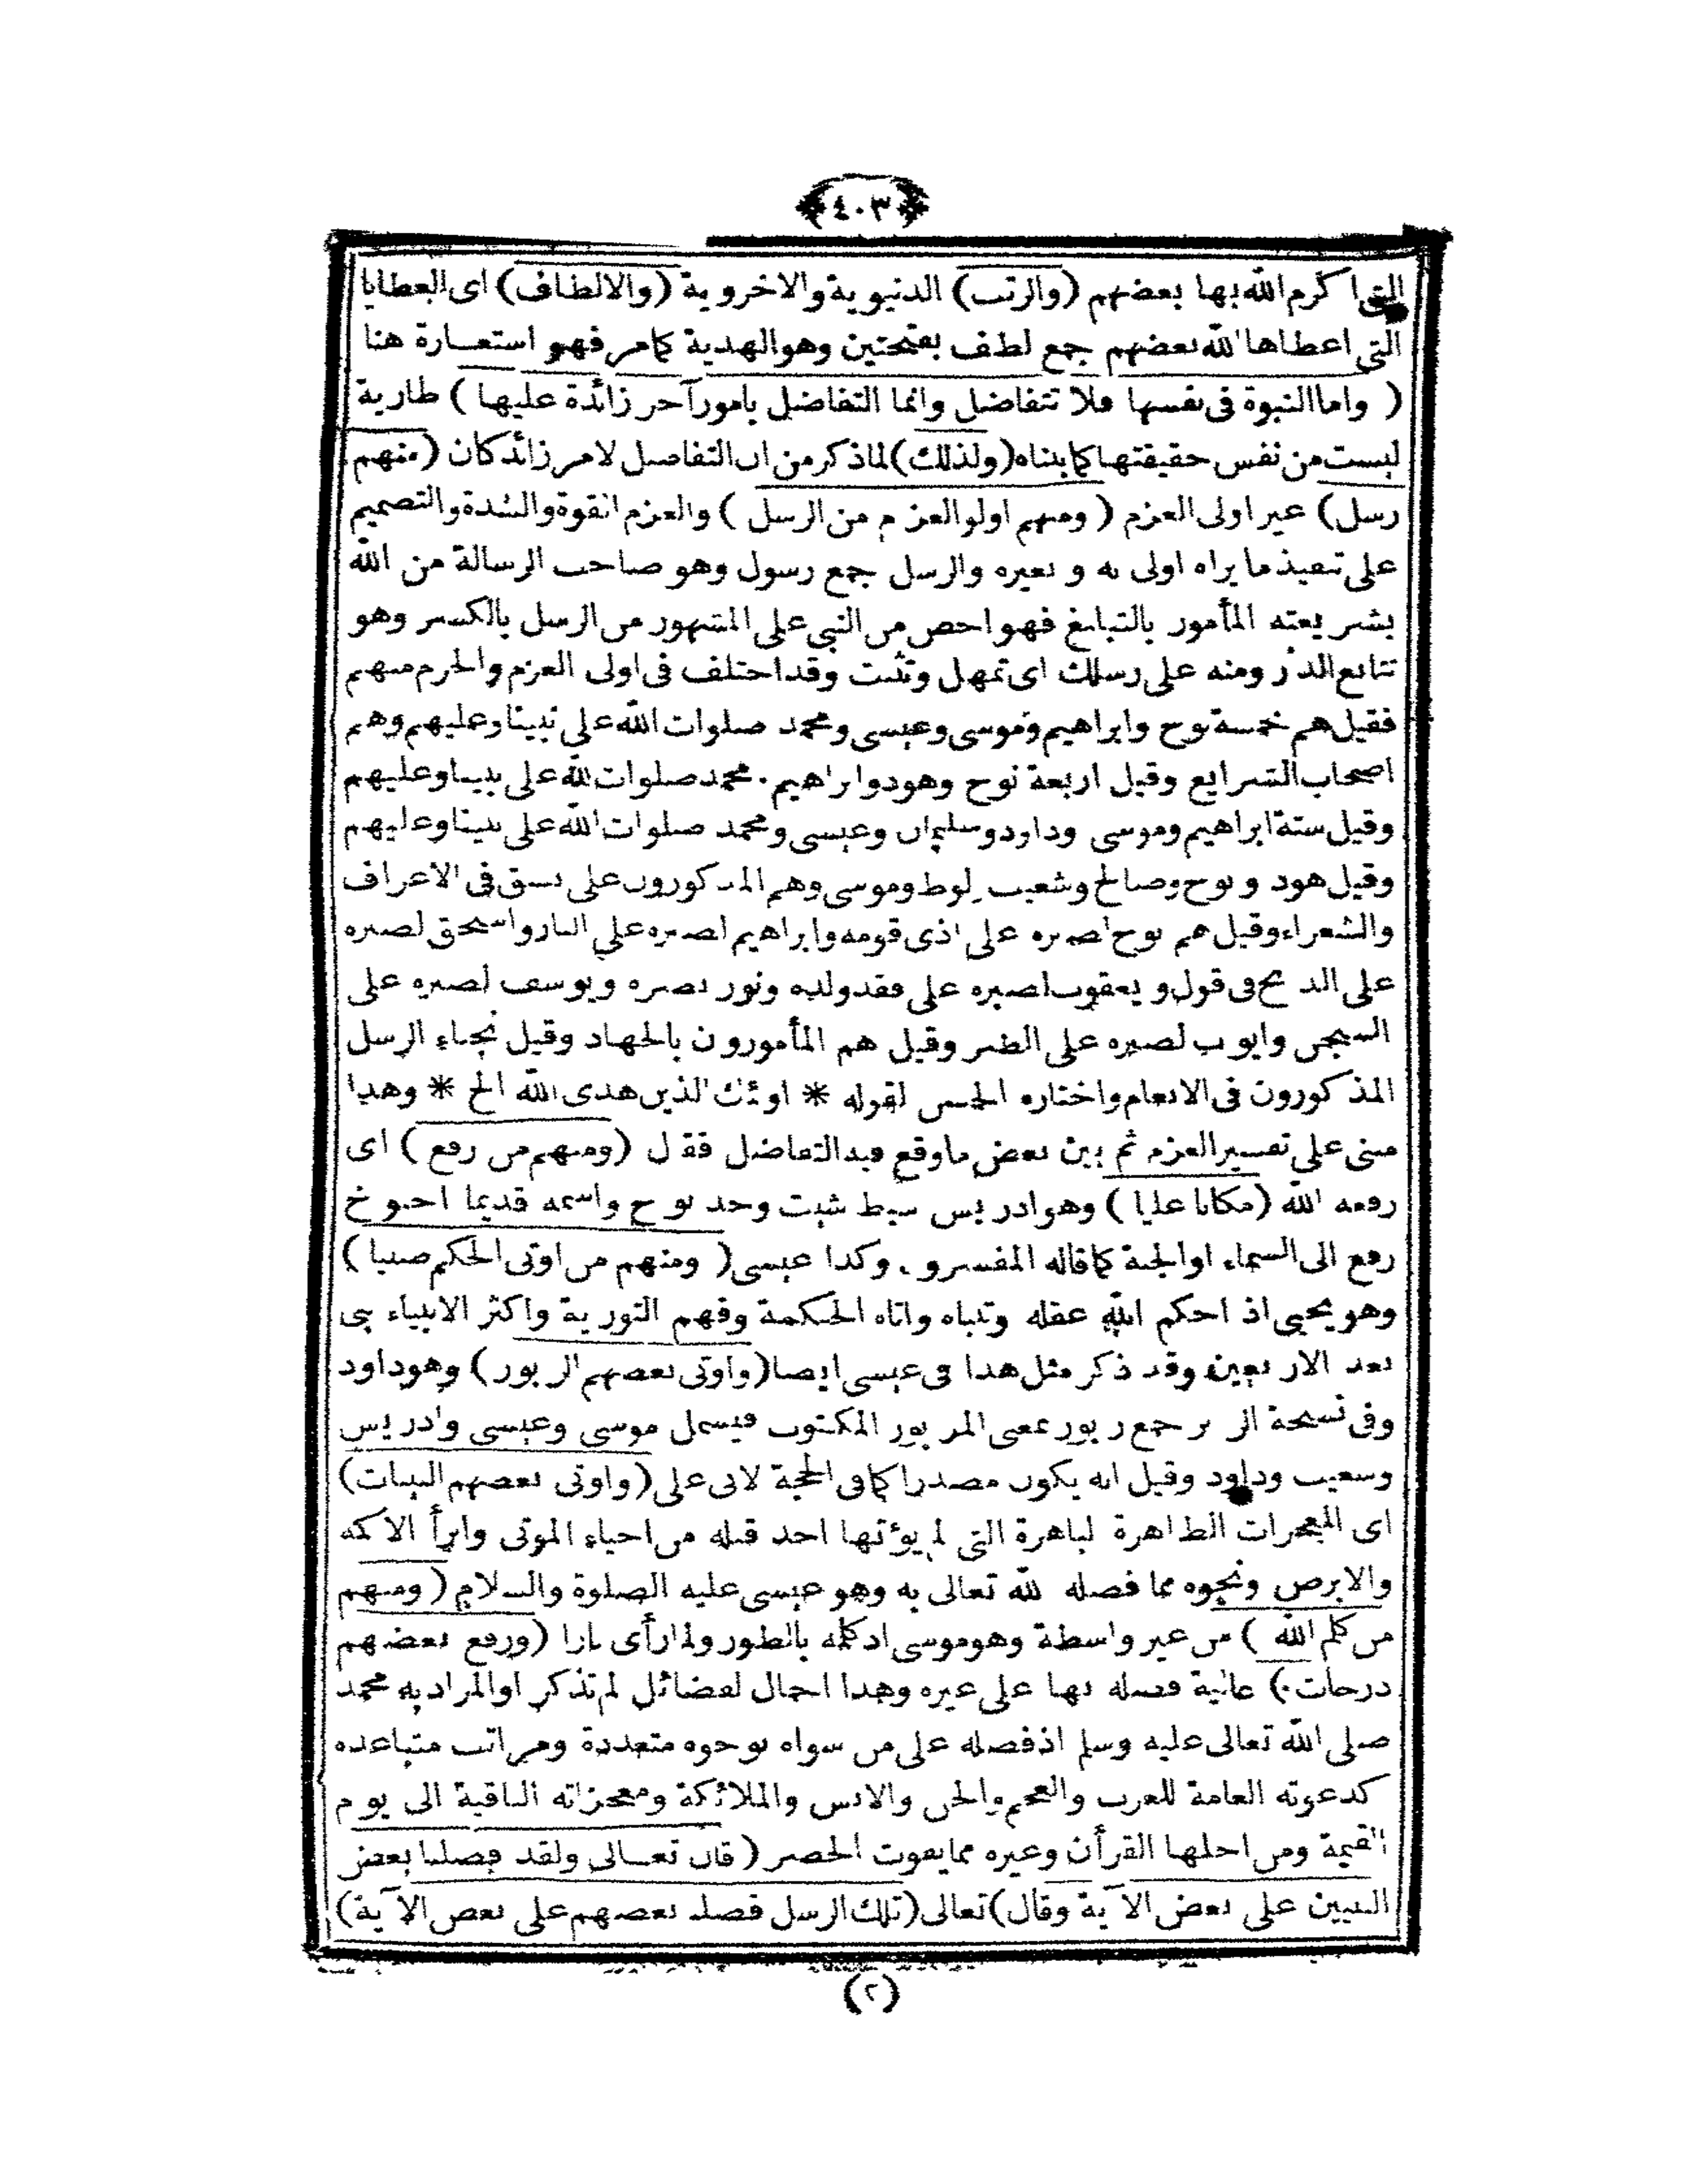 ﴿٤٠٣﴾
التى اكرم الله بها بعضهم (والرتب) الدنيوية والاخروية (والالطاف) اى العطايا
التى اعطاها الله بعضهم جمع لطف بفتحتين وهو الهدية كمامر فهو استعارة هنا
( واما النبوة فى نفسها فلا تتفاضل وانما التفاضل بامور آخر زائدة عليها ) طارية
ليست من نفس حقيقتها كما بيناه (ولذلك) لماذكر من ان التفاضل لامر زائد كان (منهم
رسل) غير اولى العزم ( ومنهم اولو العزم من الرسل ) والعزم القوة والشدة والتصميم
على تنفيذ ما يراه اولى به وبغيره والرسل جمع رسول وهو صاحب الرسالة من الله
بشريعته المأمور بالتبليغ فهو اخص من النبى على المشهور من الرسل بالكسر وهو
تتابع الدر ومنه على رسلك اى تمهل وتثبت وقد اختلف فى اولى العزم والحزم منهم
فقيل هم خمسة نوح وابراهيم وموسى وعيسى ومحمد صلوات الله على نبينا وعليهم وهم
اصحاب الشرايع وقيل اربعة نوح وهود وابراهيم ومحمد صلوات الله على نبينا وعليهم
وقيل ستة ابراهيم وموسى وداود وسليمان وعيسى ومحمد صلوات الله على نبينا وعليهم
وقيل هود ونوح وصالح وشعيب ولوط وموسى وهم المذكورون على نسق فى الاعراف
والشعراء وقيل هم نوح لصبره على اذى قومه وابراهيم لصبره على النار واسحق لصبره
على الذبح فى قول ويعقوب لصبره على فقد ولده ونور بصره ويوسف لصبره على
السجن وايوب لصبره على الضر وقيل هم المأمورون بالجهاد وقيل نجباء الرسل
المذكورون فى الانعام واختاره الحسن لقوله * اولئك الذين هدى الله الخ * وهذا
مبنى على تفسير العزم ثم بين بعض ماوقع فيه التفاضل فقال (ومنهم من رفع ) اى
رفعه الله (مكانا عليا ) وهو ادريس سبط شيث وجد نوح واسمه قديما اخنوخ
رفع الى السماء او الجنة كماقاله المفسرون وكذا عيسى ( ومنهم من اوتى الحكم صبيا )
وهو يحيى اذ احكم الله عقله ونباه واتاه الحكمة وفهم التورية واكثر الانبياء نبى
بعد الاربعين وقد ذكر مثل هذا فى عيسى ايضا (واوتى بعضهم الزبور) وهو داود
وفى نسخة الزبر جمع زبور بمعنى المزبور المكتوب فيشمل موسى وعيسى وادريس
وشعيب وداود وقيل انه يكون مصدرا كمافى الحجة لابى على (واوتى بعضهم البينات)
اى المعجزات الظاهرة الباهرة التى لم يؤتها احد قبله من احياء الموتى وابرأ الاكمه
والابرص ونحوه مما فضله الله تعالى به وهو عيسى عليه الصلوة والسلام (ومنهم
من كلم الله ) من غير واسطة وهو موسى اذ كله بالطور ولمارأى نارا (ورفع بعضهم
درجات ) عالية فضله بها على غيره وهذا اجمال لفضائل لم تذكر او المراد به محمد
صلى الله تعالى عليه وسلم اذفضله على من سواه بوجوه متعددة ومراتب متباعده
كدعوته العامة للعرب والعجم والجن والانس والملائكة ومعجزاته الباقية الى يوم
القيمة ومن اجلها القرأن وغيره مما يفوت الحصر ( قال تعالى ولقد فضلنا بعض
النبيين على بعض الآية وقال) تعالى (تلك الرسل فضلنا بعضهم على بعض الآية)
(٢)